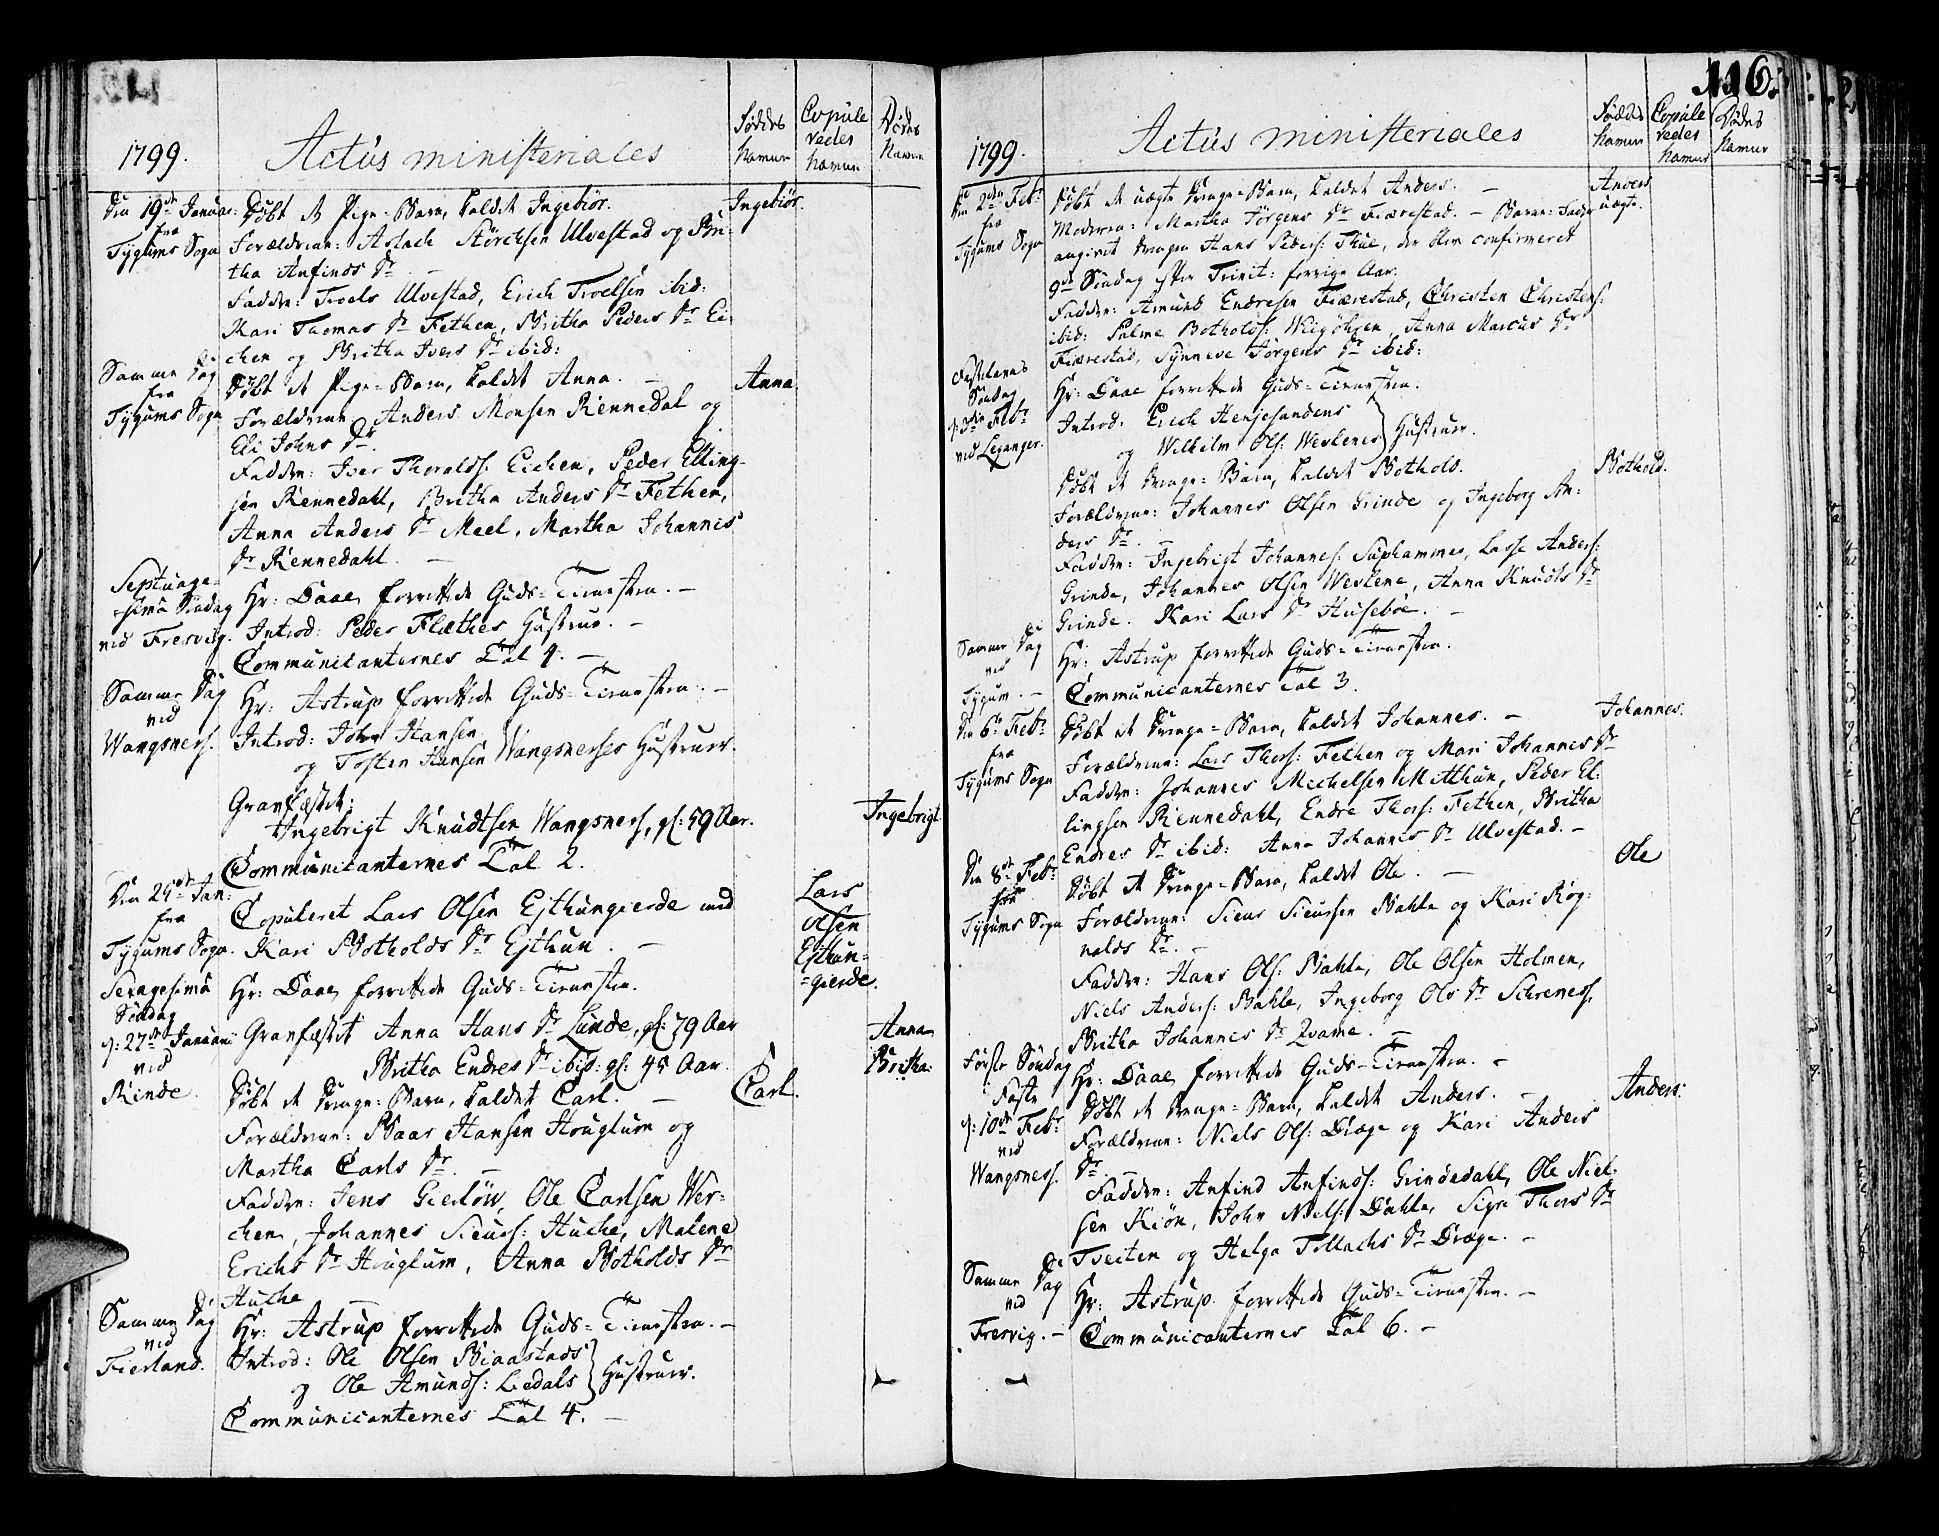 1799.
Actûs ministeriales
Fôddes Navne
Copule redes Navne
Dôdes Navne
Den 19de Januar:
fra
Tygums Sogn
Dôbt et Pige-Barn, kaldet Ingebiôr.
Ingebiôr.
Forældrene: Aslach Stôrchsen Ulvestad og Bri-
tha Anfinds Dr. –
Fadder: Troels Ulvestad, Erich Troelsen ibid:
Kari Thomas Dr Fethen, Britha Peders Dr Ei-
chen og Britha Ivers Dr ibid:
Samme Dag
fra
Tygums Sogn
Dôbt et Pige-Barn, kaldet Anna. –
Anna
Forældrene Anders Monsen Rennedal og
Eli Johns Dr
Fadder: Iver Thoralds: Eichen, Peder Elling-
sen Rennedahl, Britha Anders Dr Fethen,
Anna Anders Dr Meel, Martha Johannis
Dr Rennedahl. –
Septuage-
sima Sôndag
ved Fresvig.
Hr: Daae forrettede Guds-Tienesten. –
Introd: Peder Flæthes Hustrue. –
Communicanternes Tal 4. –
Samme Dag
ved
Wangsnes.
Hr: Astrup forrettede Guds-Tienesten. –
Introd: John Hansen
og Tosten Hansen Wangsneses Hustruer.
Gravfæstet:
Ingebrigt Knudtsen Wangsnes, gl: 59 Aar.
Ingebrigt
Communicanternes Tal 2.
Den 25de Jan:
fra
Tygums Sogn.
Copuleret Lars Olsen Ejthungierde med
Kari Botholds Dr Ejthun. –
Lars
Olsen
Ejthun-
-gierde.
Sexagesima
Sôndag
ↄ: 27de Januarii
ved
Rinde.
Hr: Daae forrettede Guds-Tienesten.
Gravfæstet Anna Hans Dr Lunde, gl: 79 Aar
Anna
Britha Endres Dr ibid: gl: 45 Aar.
Britha:
Dôbt et Drenge-Barn, kaldet Carl. –
Carl.
Forældrene: Baar Hansen Houglum og
Martha Carls Dr. –
Fadder: Jens Gierlôw, Ole Carlsen Wer-
chen, Johannes Siurs: Huche, Malene
Erichs Dr Houglum, Anna Botholds Dr
Huche
Samme Dag
ved
Fierland.
Hr: Astrup forrettede Guds-Tienesten. –
Introd: Ole Olsen Biaastads
og Ole Amunds: Ledals } Hustruer.
Communicanternes Tal 4. –
116.
1799.
Actûs ministeriales
Fôddes Navne
Copule redes Navne
Dôdes Navne
Den 2den Febr
fra
Tygums Sogn
Dôbt et uægte Drenge-Barn, kaldet Anders. –
Anders
uægte.
Moderen: Martha Jôrgens Dr Fiærestad. – Barne-Fader
angivet Drengen Hans Peders: Thue, der blev confirmeret
9de Sôndag efter Trinit: forrige Aar.
Fadder: Amund Endresen Fiærestad, Christen Christens:
ibid: Palme Botholds: Anna Marcus Dr
Fiærestad, Synneve Jôrgens Dr ibid:
Fastelavns
Sôndag
ↄ: 3die Febr
ved Leganger.
Hr: Daae forrettede Guds-Tienesten.
Introd: Erich Henjesandens
og Wilhelm Ols: Weslenes } Hustruer.
Dôbt et Drenge-Barn, kaldet Bothold.
Bothold.
Forældrene: Johannes Olsen Grinde og Ingeborg An-
ders Dr. –
Fadder: Ingebrigt Johannes: Suphammer, Lasse Anders:
Grinde, Johannes Olsen Weslene, Anna Knudts Dr
Grinde. Kari Lars Dr Husebôe. –
Samme Dag
ved
Tygum. –
Hr: Astrup forrettede Guds-Tienesten.
Communicanternes Tal 3.
Den 6te Febr
fra
Tygums Sogn
Dôbt et Drenge-Barn, kaldet Johannes. –
Johannes.
Forældrene: Lars Thors: Fethen og Mari Johannis Dr
Fadder: Johannes Michelsen Mitthun, Peder El-
lingsen Rennedahl, Endre Thors: Fethen, Britha
Endres Dr ibid: Anna Johannis Dr Ulvestad. –
Den 8de Febr
fra
Tygums Sogn
Dôbt et Drenge-Barn, kaldet Ole. –
Ole
Forældrene: Siur Siurssen Bahle og Kari Rog-
nalds Dr. –
Fadder: Hans Ols: Bahle, Ole Olsen Holmen,
Niels Anders: Bahle, Ingeborg Ols Dr Schrenes,
Britha Johannis Dr Qvame. –
Fôrste Sôndag
i Faste
ↄ: 10de Febr
ved
Wangsnes.
Hr: Daae forrettede Guds-Tienesten. –
Dôbt et Drenge-Barn, kaldet Anders. –
Anders:
Forældrene: Niels Ols: Dræge og Kari Anders
Dr. –
Fadder: Anfind Anfinds: Grindedahl, Ole Niel-
sen Kiôn, John Niels: Dahle, Sigri Thors Dr
Tveiten og Helga Tollachs Dr Dræge. –
Samme Dag
ved
Fresvig. –
Hr: Astrup forrettede Guds-Tienesten. –
Communicanternes Tal 6. –